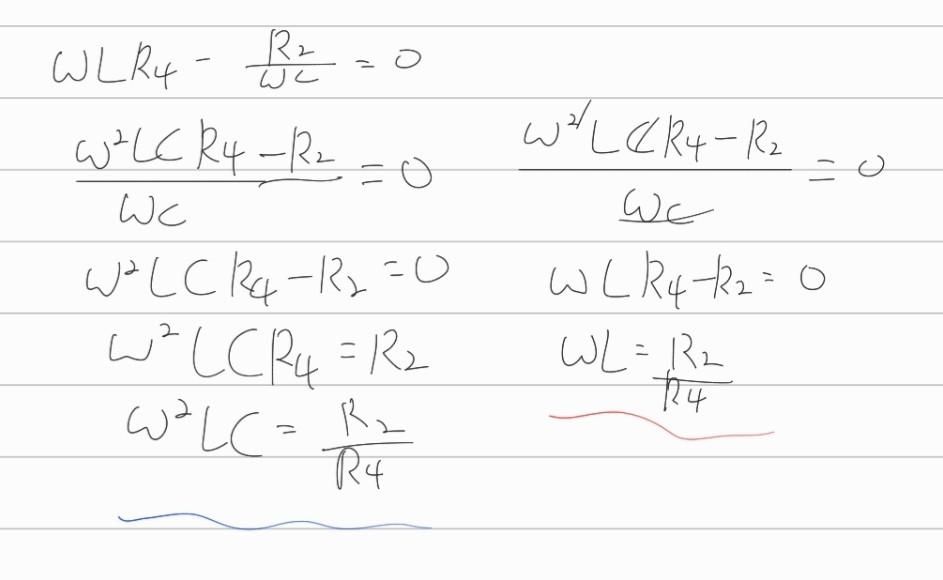 ωLR₄ - R₂/ωC = 0
(ω²LCR₄ - R₂)/ωC = 0
ω²LCR₄ - R₂ = 0
ω²LCR₄ = R₂
ω²LC = R₂/R₄
(ω²LCR₄ - R₂)/ωC = 0
ωLR₄ - R₂ = 0
ωL = R₂/R₄